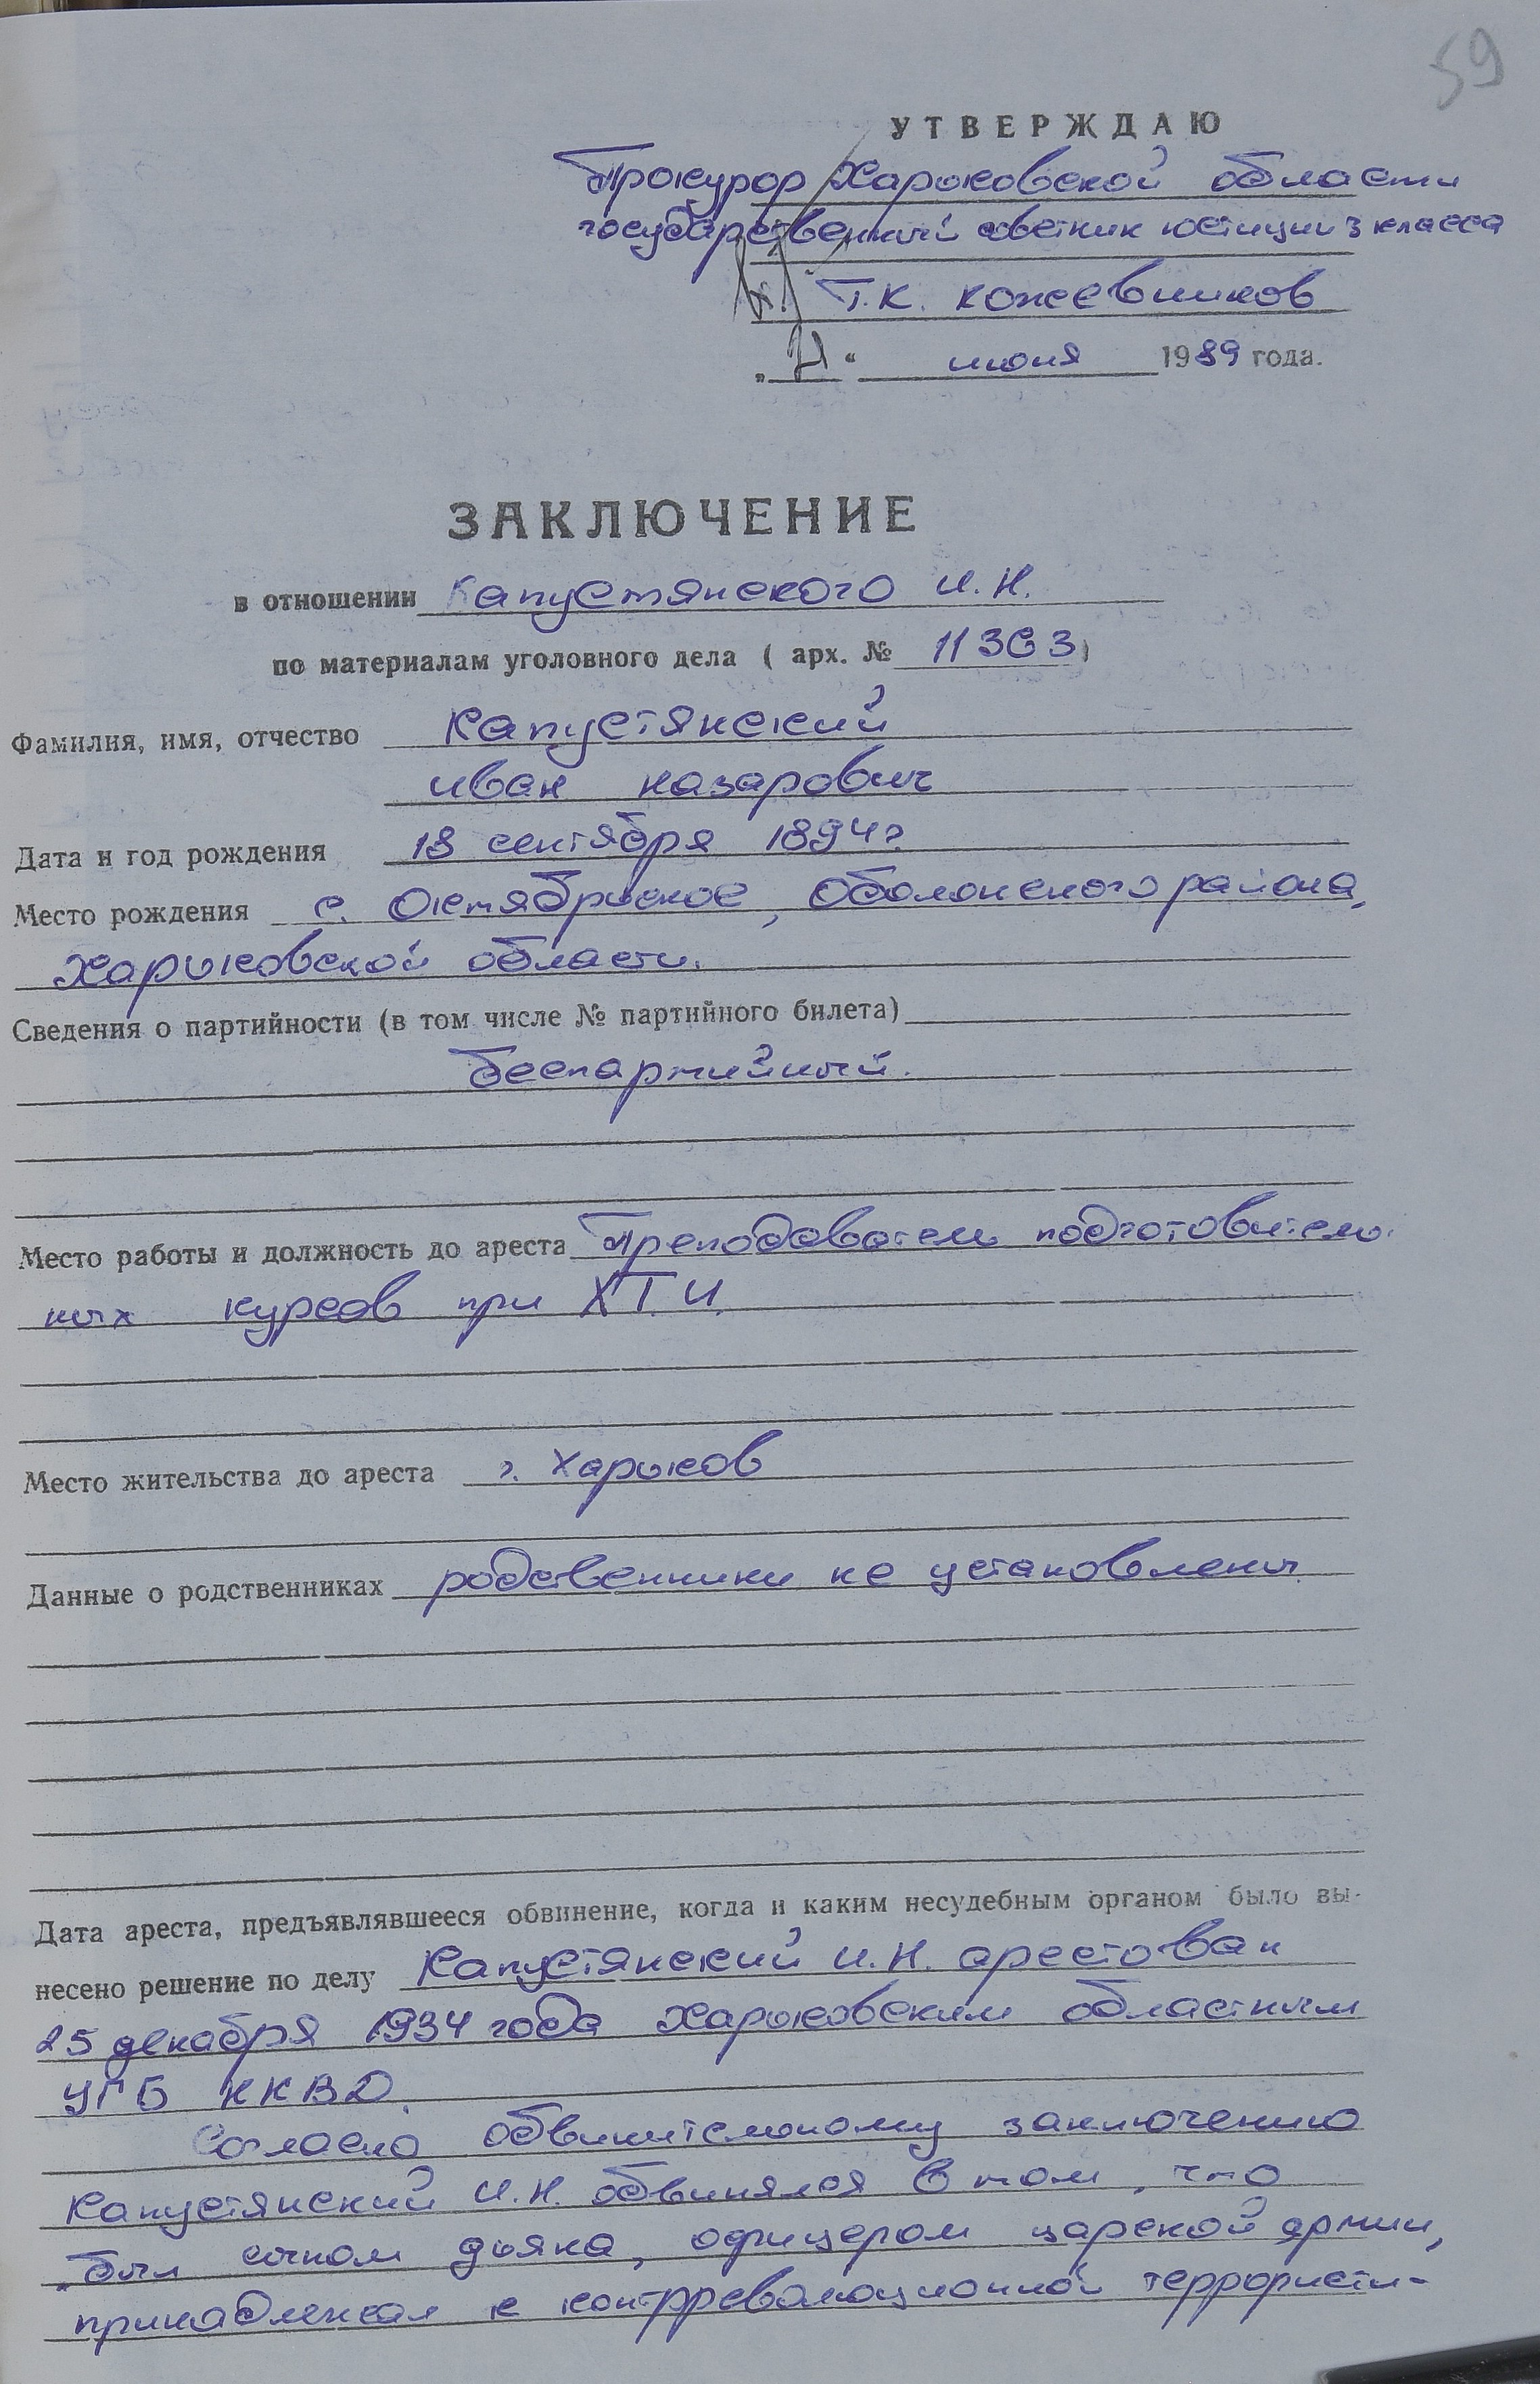 59
УТВЕРЖДАЮ
Прокурор Харьковской области
государственный советник юстиции 3 класса
Г.К. Кожевников
" " июня 1989 года.
ЗАКЛЮЧЕНИЕ
в отношении Капустянского И.Н.
по материалам уголовного дела ( арх. № 11363)
Фамилия, имя, отчество Капустянский
Иван Назарович
Дата и год рождения 18 сентября 1894 г.
Место рождения с. Октябрьское, Оболонского района,
Харьковской области.
Сведения о партийности (в том числе № партийного билета)
беспартийный.
Место работы и должность до ареста Преподаватель подготовитель-
ных курсов при ХТИ.
Место жительства до ареста г. Харьков
Данные о родственниках родственники не установлены
Дата ареста, предъявлявшееся обвинение, когда и каким несудебным органом было вы-
несено решение по делу Капустянский И.Н. арестован
25 декабря 1934 года Харьковским областным
УГБ НКВД.
Согласно обвинительному заключению
Капустянский И.Н. обвинялся в том, что
"был сыном дьяка, офицером царской армии,
принадлежал к контрреволюционной террористи-